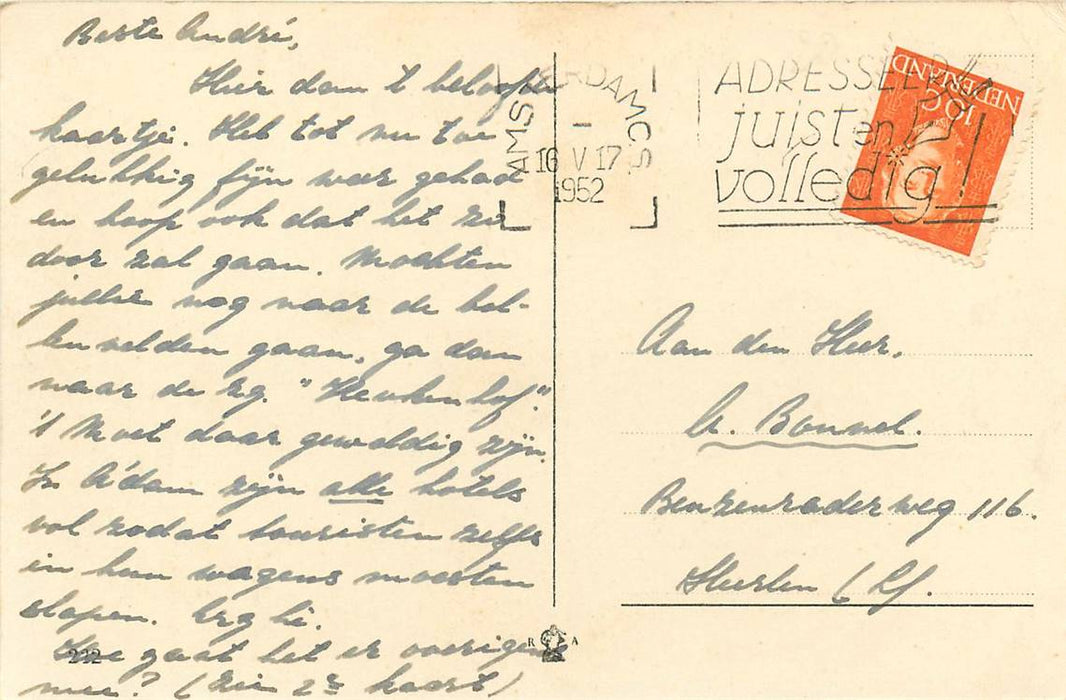 Beste André,
Hier dan 't beloofde
kaartje. Heb tot nu toe
gelukkig fijn weer gehad
en hoop ook dat het zo
door zal gaan. Mochten
jullie nog naar de bol-
lenvelden gaan, ga dan
naar de zg. "Keukenhof."
't Moet daar geweldig zijn.
In A'dam zijn alle hotels
vol zodat touristen zelfs
in hun wagens moesten
slapen. Erg hè.
Hoe gaat het er overigens
mee? (Zie 2e kaart)
222
R A
AMSTERDAM CS
16 V 17
1952
ADRESSEER
juist en
volledig!
10 C
NEDERLAND
Aan den Heer.
A. Bonnel.
Benzenraderweg 116.
Heerlen (L).